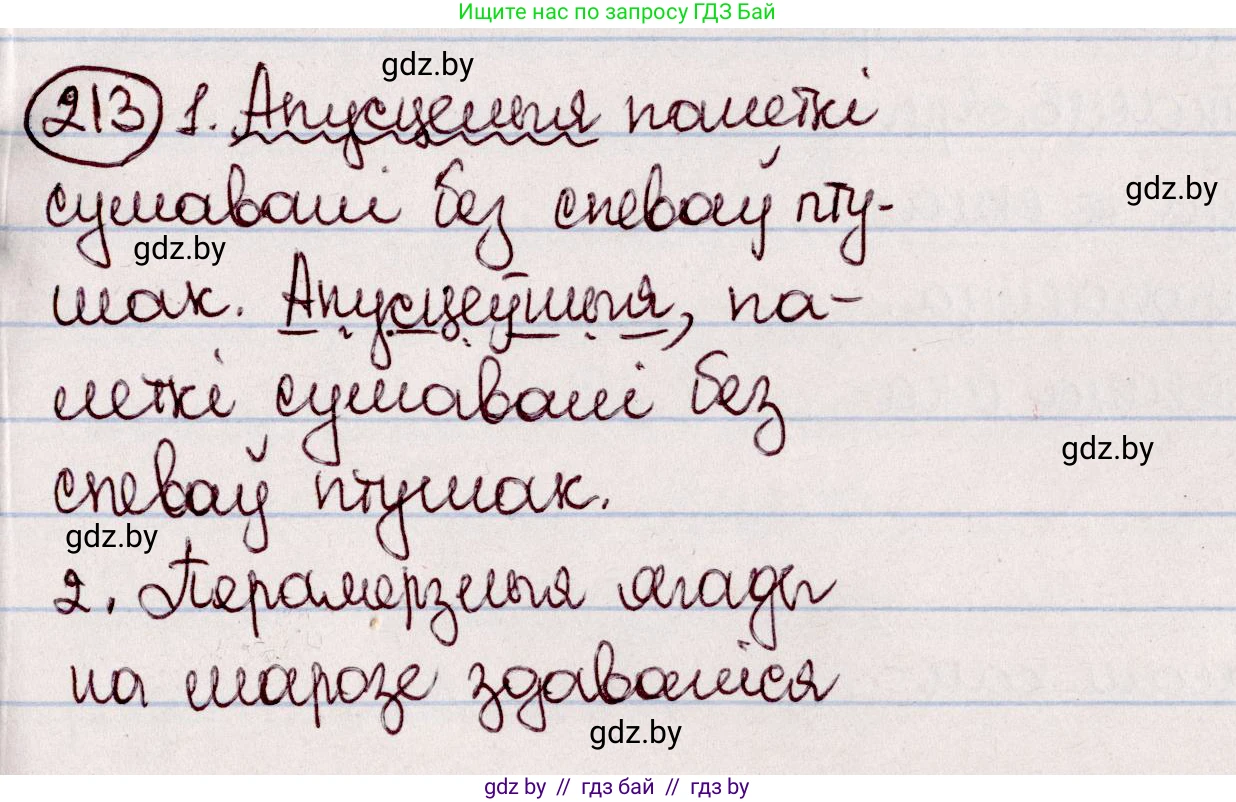 Ищите нас по запросу ГДЗ Бай
gdz.by
213 1. Апусцелыя палеткі
gdz.by
сумавалі без спеваў пту-
gdz.by
шак. Апусцеўшыя, па-
леткі сумавалі без
gdz.by
спеваў птушак.
gdz.by
2. Перамерзлыя ягады
на марозе здаваліся
gdz.by
gdz.by // гдз бай // гдз by